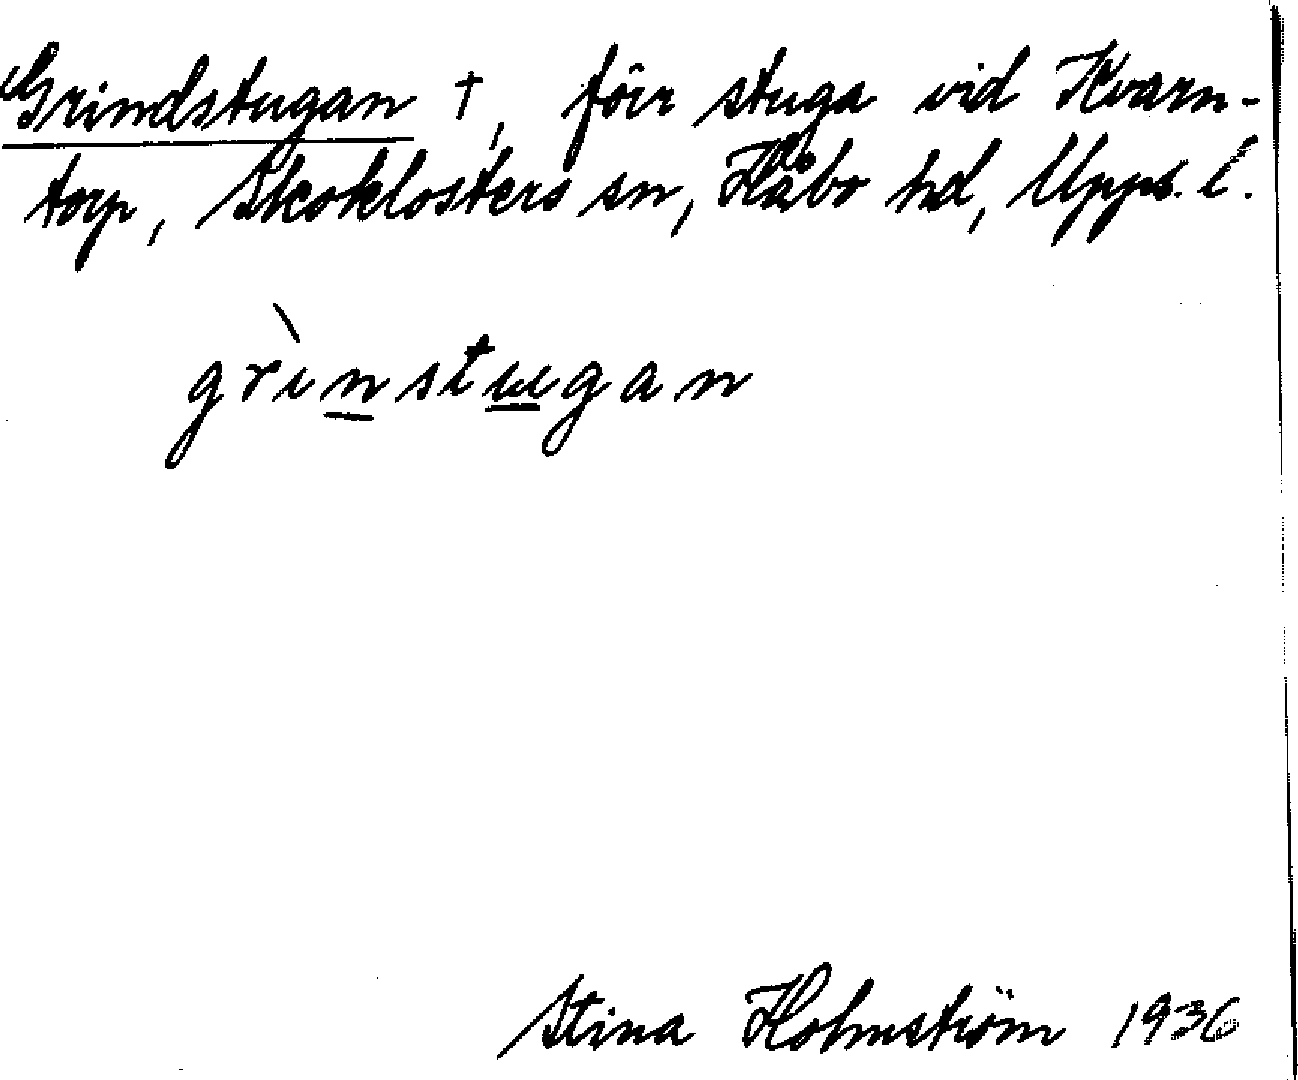 Grindstugan †, förr stuga vid Kvarn-
torp, Skoklosters sn, Håbo hd, Upps. l.
grìnstugan
Stina Holmström 1936